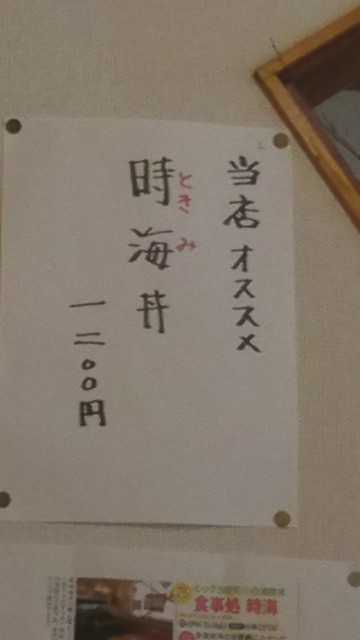 当店オススメ
時海丼
とき み
一二〇〇円
食事処 時海